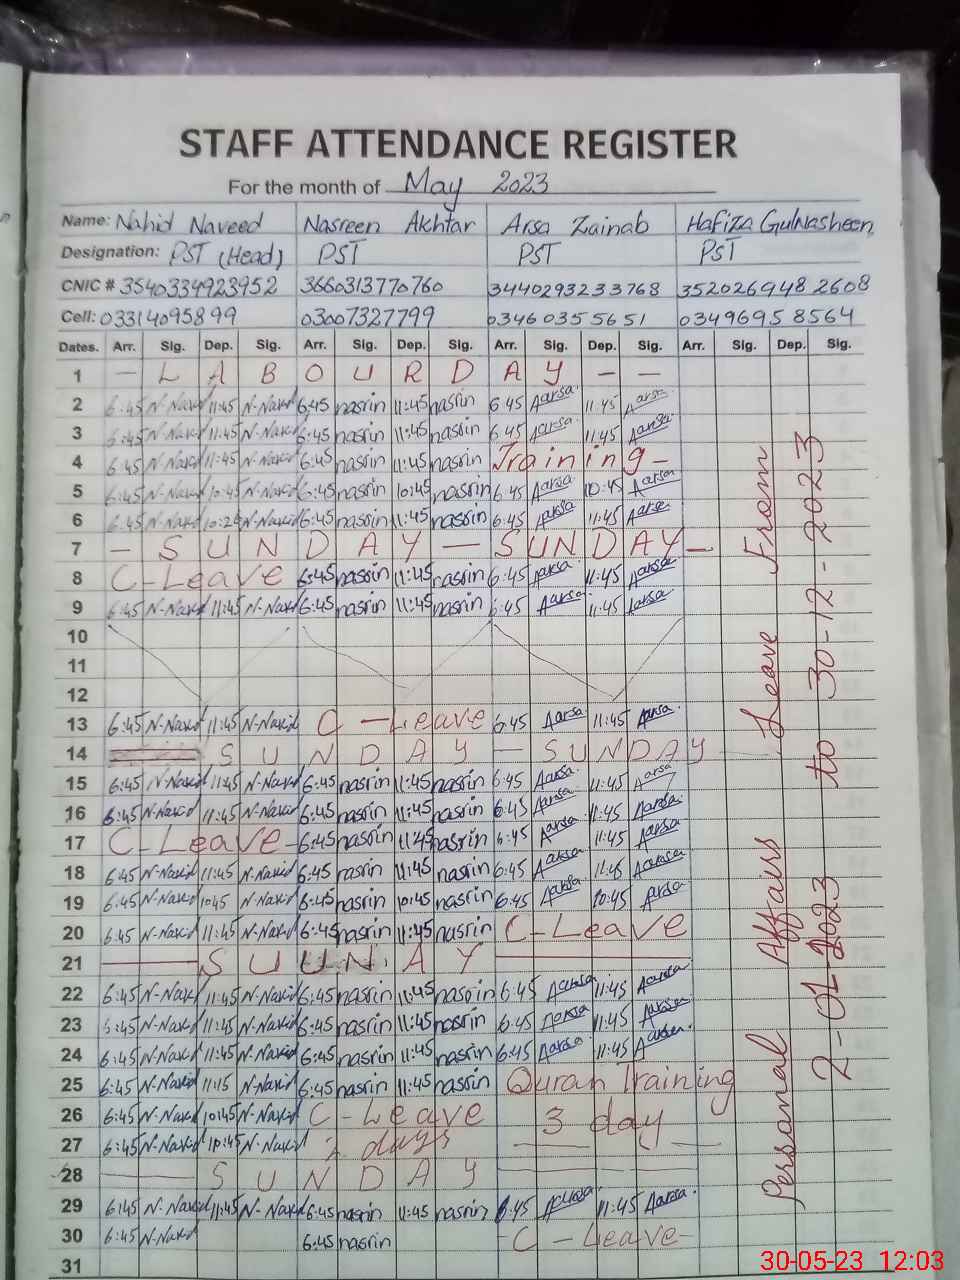 STAFF ATTENDANCE REGISTER
For the month of May 2023
Name: Nahid Naveed Nasreen Akhtar Arsa Zainab Hafiza GulNasheen
Designation: PST (Head) PST PST PST
CNIC # 3540334923952 3660313770760 3440293233768 3520269482608
Cell: 03314095899 03007327799 03460355651 03496958564
Dates. Arr. Sig. Dep. Sig. Arr. Sig. Dep. Sig. Arr. Sig. Dep. Sig. Arr. Sig. Dep. Sig.
1 - L A B O U R D A Y - -
2 6:45 N-Navid 11:45 N-Navid 6:45 nasrin 11:45 nasrin 6:45 Aarsa 11:45 Aarsa
3 6:45 N-Navid 11:45 N-Navid 6:45 nasrin 11:45 nasrin 6:45 Aarsa 11:45 Aarsa
4 6:45 N-Navid 11:45 N-Navid 6:45 nasrin 11:45 nasrin Training-
5 6:45 N-Navid 10:45 N-Navid 6:45 nasrin 10:45 nasrin 6:45 Aarsa 10:45 Aarsa
6 6:45 N-Navid N-Navid 6:45 nasrin 11:45 nasrin 6:45 Aarsa 11:45 Aarsa
7 - S U N D A Y - S U N D A Y -
8 C-Leave 6:45 nasrin 11:45 nasrin 6:45 Aarsa 11:45 Aarsa
9 6:45 N-Navid 11:45 N-Navid 6:45 nasrin 11:45 nasrin 6:45 Aarsa 11:45 Aarsa
10
11
12
13 6:45 N-Navid 11:45 N-Navid C-Leave 6:45 Aarsa 11:45 Aarsa
14 S U N D A Y - S U N D A Y
15 6:45 N-Navid 11:45 N-Navid 6:45 nasrin 11:45 nasrin 6:45 Aarsa 11:45 Aarsa
16 6:45 N-Navid 11:45 N-Navid 6:45 nasrin 11:45 nasrin 6:45 Aarsa 11:45 Aarsa
17 C-Leave- 6:45 nasrin 11:45 nasrin 6:45 Aarsa 11:45 Aarsa
18 6:45 N-Navid 11:45 N-Navid 6:45 nasrin 11:45 nasrin 6:45 Aarsa 11:45 Aarsa
19 6:45 N-Navid 10:45 N-Navid 6:45 nasrin 10:45 nasrin 6:45 Aarsa 10:45 Aarsa
20 6:45 N-Navid 11:45 N-Navid 6:45 nasrin 11:45 nasrin C-Leave
21 S U U N A Y
22 6:45 N-Navid 11:45 N-Navid 6:45 nasrin 11:45 nasrin 6:45 Aarsa 11:45 Aarsa
23 6:45 N-Navid 11:45 N-Navid 6:45 nasrin 11:45 nasrin 6:45 Aarsa 11:45 Aarsa
24 6:45 N-Navid 11:45 N-Navid 6:45 nasrin 11:45 nasrin 6:45 Aarsa 11:45 Aarsa
25 6:45 N-Navid 11:15 N-Navid 6:45 nasrin 11:45 nasrin Quran Training
26 6:45 N-Navid 10:45 N-Navid C-Leave 3 day
27 6:45 N-Navid N-Navid 2 days
28 S U N D A Y
29 6:45 N-Navid 11:45 N-Navid 6:45 nasrin 11:45 nasrin 6:45 Aarsa 11:45 Aarsa
30 6:45 N-Navid 6:45 nasrin -C-Leave-
31
Personal Affairs Leave From
2-01-2023 to 30-12-2023
30-05-23 12:03